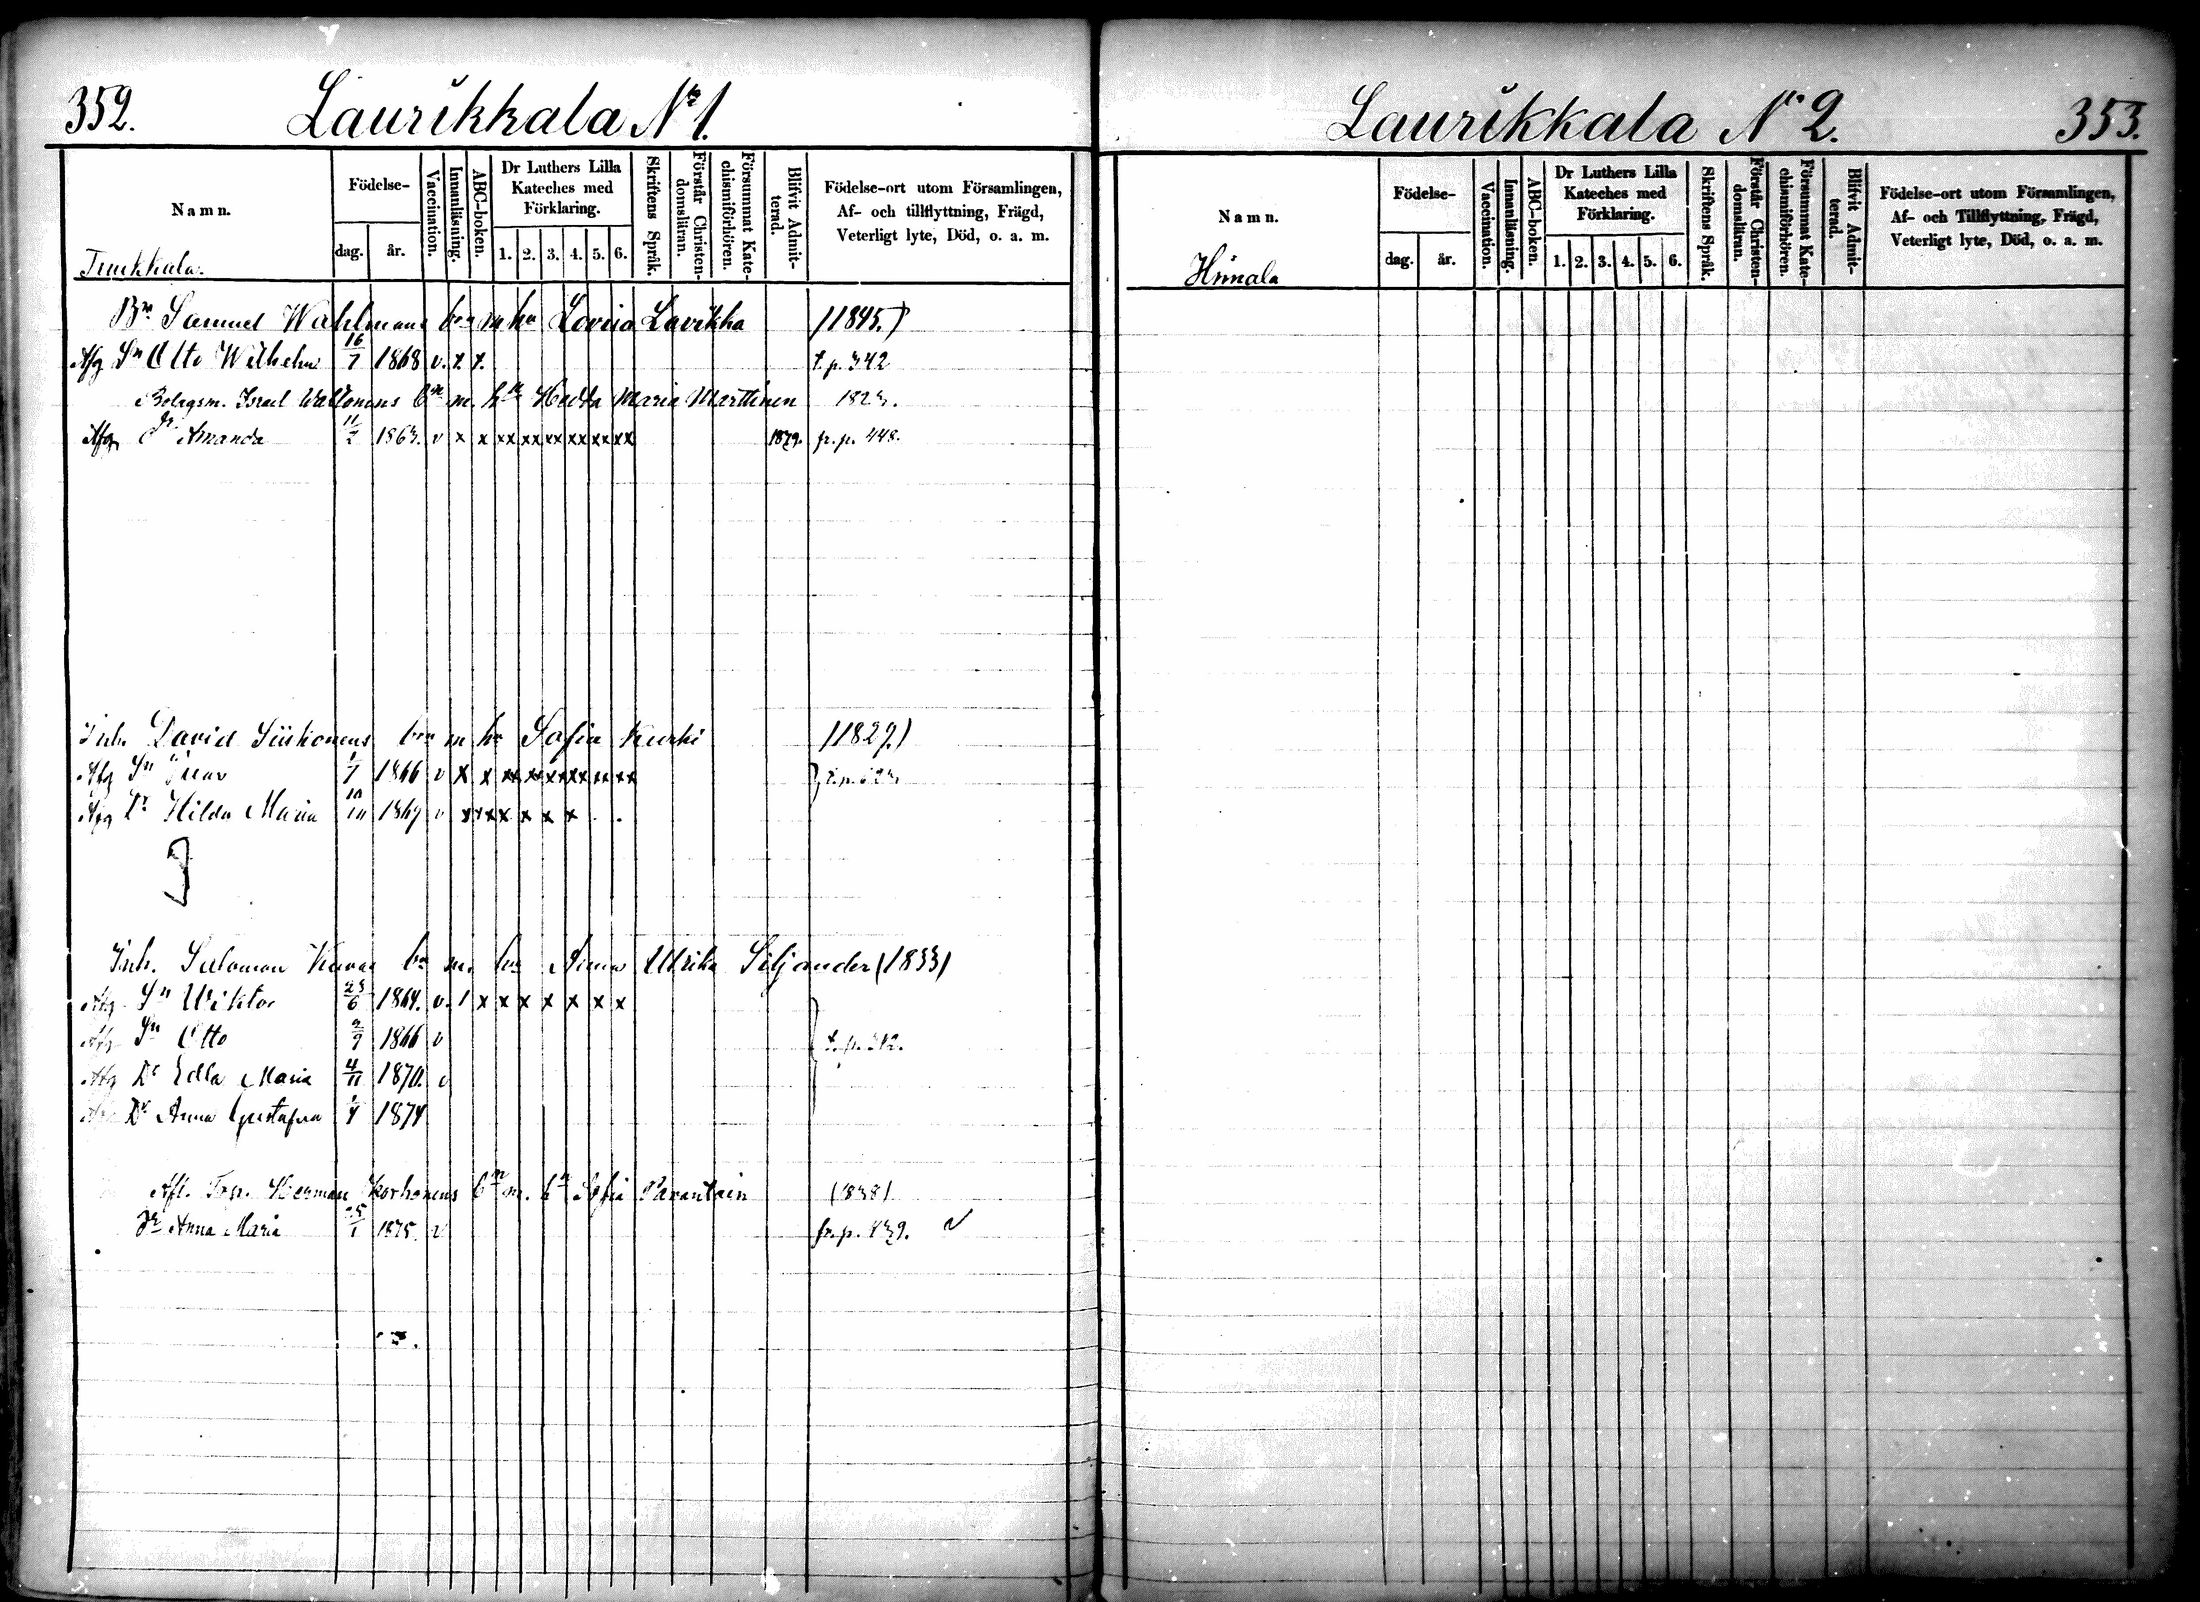 352.
Laurikkala No 1.
Namn.
Födelse-
dag. år.
Vaccination.
Innanläsning.
ABC-boken.
Dr Luthers Lilla Kateches med Förklaring.
1. 2. 3. 4. 5. 6.
Skriftens Språk.
Förstår Christen-domsläran.
Försummat Kate-chismiförhören.
Blifvit Admit-terad.
Födelse-ort utom Församlingen,
Af- och tillflyttning, Frägd,
Veterligt lyte, Död, o. a. m.
Bn Samuel Wahlmans bn m hu Lovisa Lavikka (1845.)
Afg Sn Otto Wilhelm 16/7 1868 v. x x. t. p. 342
Bolagsm. Israel Wallonens bn m. hu Hedda Maria Marttinen 1823.
Afg Dr Amanda 11/2 1863. v x x xx xx xx xx xx xx 1879. fr. p. 448.
Inh. David Siiskonens bn m hu Sofia Kurki (1829.)
Afg Sn 1/7 1866 v x x xx xx xx xx xx xx
Afg Dr Hilda Maria 10/10 1869 v x x x x x x x
Inh. Salomon bn m. hu Anna Ulrika Siljander (1833)
Afg Sn Wiktor 23/6 1864. v. / x x x x x x x
Afg Sn Otto 2/9 1866 v t. p. 312.
Afg Dr Edla Maria 4/11 1870. v
Afg Dr Anna Gustafva 1/4 1874
Afl. Torp. Herman Korhonens bn m. hu Sofia Parantain (1838)
Dr Anna Maria 25/1 1875. v fr. p. 839. v
Laurikkala No 2.
353.
Namn.
Hunala
Födelse-
dag. år.
Vaccination.
Innanläsning.
ABC-boken.
Dr Luthers Lilla Kateches med Förklaring.
1. 2. 3. 4. 5. 6.
Skriftens Språk.
Förstår Christen-domsläran.
Försummat Kate-chismiförhören.
Blifvit Admit-terad.
Födelse-ort utom Församlingen,
Af- och Tillflyttning, Frägd,
Veterligt lyte, Död, o. a. m.